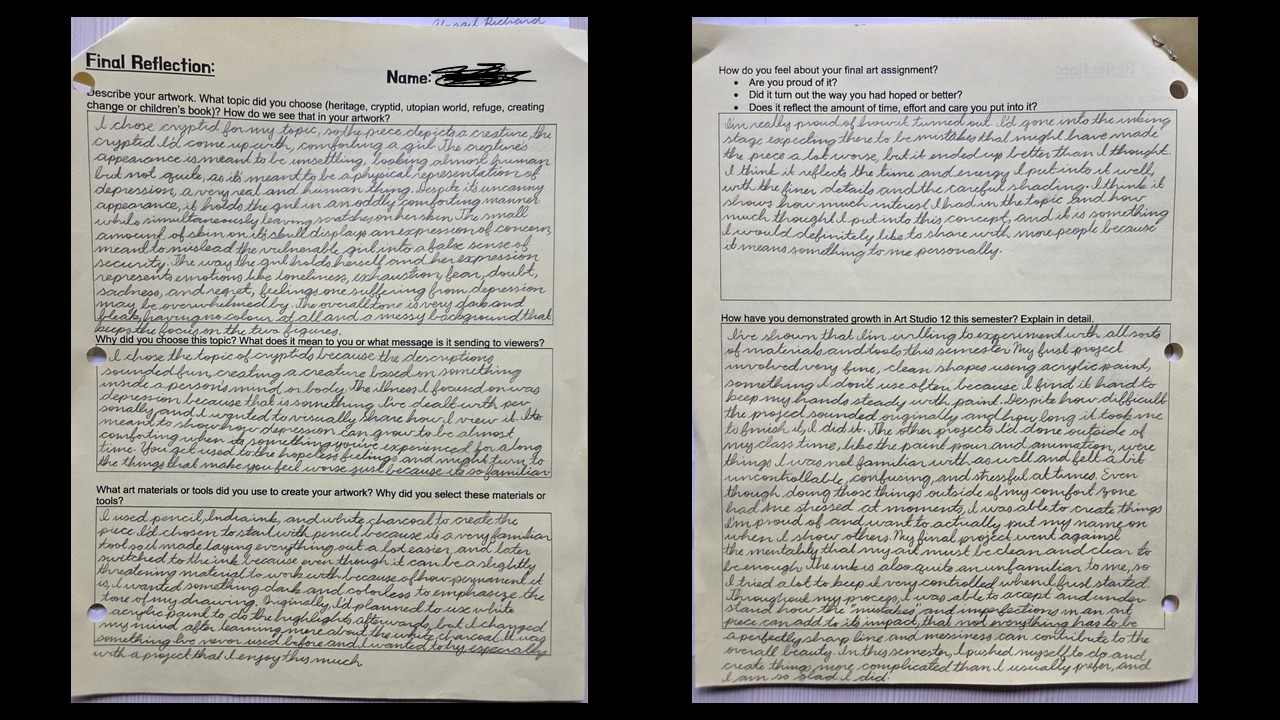 Final Reflection:
Name:
Describe your artwork. What topic did you choose (heritage, cryptid, utopian world, refuge, creating
change or children's book)? How do we see that in your artwork?
I chose cryptid for my topic, so the piece depicts a creature, the
cryptid I'd come up with, comforting a girl. The creature's
appearance is meant to be unsettling, looking almost human
but not quite, as it's meant to be a physical representation of
depression, a very real and human thing. Despite its uncanny
appearance, it holds the girl in an oddly comforting manner
while simultaneously leaving scratches on her skin. The small
amount of skin on its skull displays an expression of concern,
meant to mislead the vulnerable girl into a false sense of
security. The way the girl holds herself and her expression
represents emotions like loneliness, exhaustion, fear, doubt,
sadness, and regret, feelings one suffering from depression
may be overwhelmed by. The overall tone is very dark and
bleak, having no colour at all and a messy background that
keeps the focus on the two figures.
Why did you choose this topic? What does it mean to you or what message is it sending to viewers?
I chose the topic of cryptids because the descriptions
sounded fun, creating a creature based on something
inside a person's mind or body. The illness I focused on was
depression because that is something I've dealt with per
sonally and I wanted to visually share how I view it. Its
meant to show how depression can grow to be almost
comforting when its something you've experienced for a long
time. You get used to the hopeless feelings and might turn to
the things that make you feel worse just because its so familiar.
What art materials or tools did you use to create your artwork? Why did you select these materials or
tools?
I used pencil, India ink, and white charcoal to create the
piece. I'd chosen to start with pencil because it's a very familiar
tool so it made laying everything out a lot easier, and later
switched to the ink because even though it can be a slightly
threatening material to work with because of how permanent it
is, I wanted something dark and colorless to emphasize the
tone of my drawing. Originally, I'd planned to use white
acrylic paint to do the highlights afterwards, but I changed
my mind after learning more about the white charcoal. It was
something I've never used before and I wanted to try especially
with a project that I enjoy this much.
How do you feel about your final art assignment?
• Are you proud of it?
• Did it turn out the way you had hoped or better?
• Does it reflect the amount of time, effort and care you put into it?
I'm really proud of how it turned out. I'd gone into the inking
stage expecting there to be mistakes that might have made
the piece a lot worse, but it ended up better than I thought.
I think it reflects the time and energy I put into it well,
with the finer details and the careful shading. I think it
shows how much interest I had in the topic and how
much thought I put into this concept, and it is something
I would definitely like to share with more people because
it means something to me personally.
How have you demonstrated growth in Art Studio 12 this semester? Explain in detail.
I've shown that I'm willing to experiment with all sorts
of materials and tools this semester. My first project
involved very fine, clean shapes using acrylic paint,
something I don't use often because I find it hard to
keep my hands steady with paint. Despite how difficult
the project sounded originally and how long it took me
to finish it, I did it. The other projects I'd done outside of
my class time, like the paint pour and animation, were
things I was not familiar with as well and felt a bit
uncontrollable, confusing, and stressful at times. Even
though doing those things outside of my comfort zone
had me stressed at moments, I was able to create things
I'm proud of and want to actually put my name on
when I show others. My final project went against
the mentality that my art must be clean and clear to
be enough. The ink is also quite an unfamiliar to me, so
I tried a lot to keep it very controlled when I first started.
Throughout my process, I was able to accept and under
stand how the "mistakes" and imperfections in an art
piece can add to its impact, that not everything has to be
a perfectly sharp line and messiness can contribute to the
overall beauty. In this semester, I pushed myself to do and
create things more complicated than I usually prefer, and
I am so glad I did.